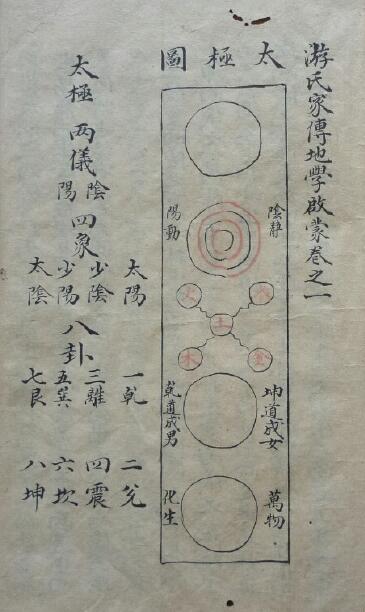 游氏家傳地學啟蒙卷之一
太極圖
陰静
陽動
水
火
土
金
木
坤道成女
乾道成男
萬物
化生
太極
兩儀
陰
陽
四象
太陽
少陰
少陽
太陰
八卦
一乾
二兌
三離
四震
五巽
六坎
七艮
八坤